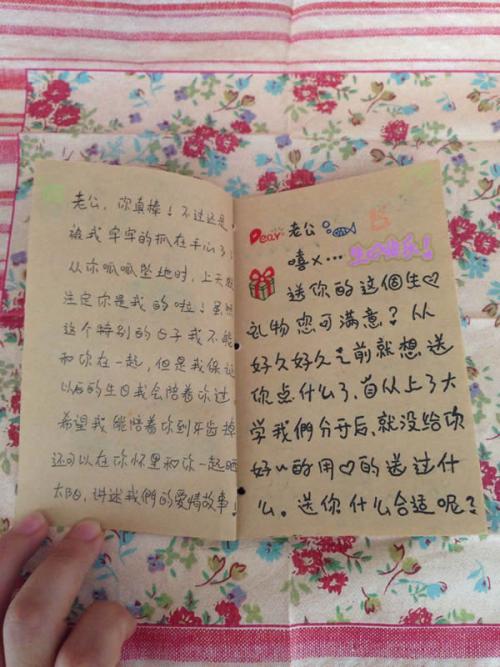 老公，你真棒！不过还是
被我牢牢的抓在手心了！
从你呱呱坠地时，上天就
注定你是我的啦！虽然
这个特别的日子我不能
和你在一起，但是我保证
以后的生日我会陪着你过，
希望我能陪着你到牙齿掉
还可以在你怀里和你一起晒
太阳，讲述我們的爱情故事！
Dear 老公
嘻x… 生日快乐！
送你的这個生♡
礼物您可满意？从
好久好久之前就想送
你点什么了，自从上了大
学我們分开后，就没给你
好〃的用♡的送过什
么。送你什么合适呢？